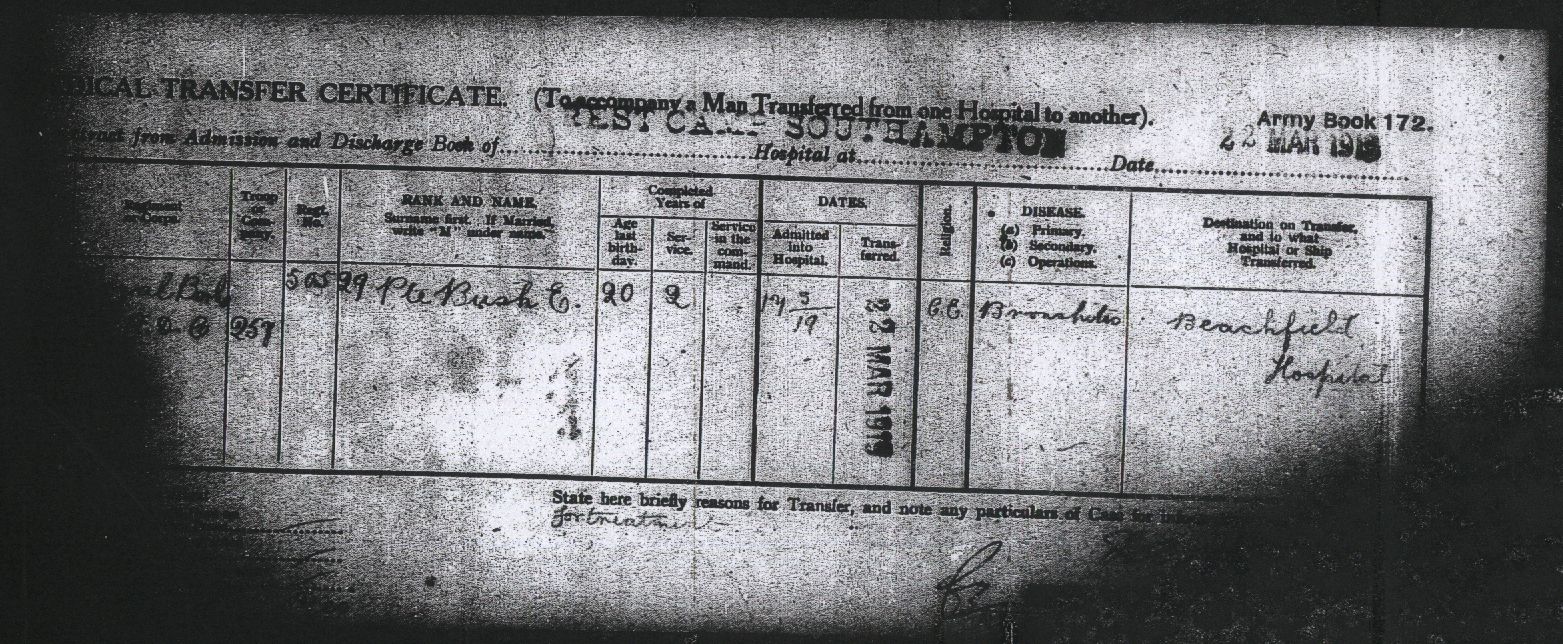 ICAL TRANSFER CERTIFICATE. (To accompany a Man Transferred from one Hospital to another). Army Book 172.
REST CAMP SOUTHAMPTON 22 MAR 191
from Admission and Discharge Book of Hospital at Date
Regiment or Corps.
Troop or Company.
Regt. No.
RANK AND NAME.
Surname first. If Married,
write "M" under name.
Completed
Years of
Age
last
birth-
day.
Ser-
vice.
Service
in the
com-
mand.
DATES.
Admitted
into
Hospital.
Trans-
ferred.
Religion.
DISEASE.
(a) Primary.
(b) Secondary.
(c) Operations.
Destination on Transfer,
and to what
Hospital or Ship
Transferred.
50529 Pte Bush E. 20 2 22 MAR 1919 C.E. Bronchitis Beachfield
257 Hospital
State here briefly reasons for Transfer, and note any particulars of Case for
for treatment